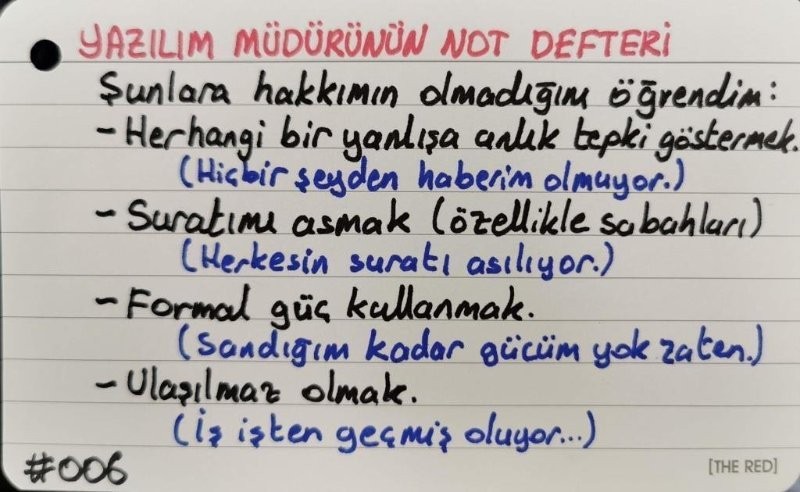 YAZILIM MÜDÜRÜNÜN NOT DEFTERİ
Şunlara hakkımın olmadığını öğrendim:
- Herhangi bir yanlışa anlık tepki göstermek.
(Hiçbir şeyden haberim olmuyor.)
- Suratımı asmak (özellikle sabahları)
(Herkesin suratı asılıyor.)
- Formal güç kullanmak.
(Sandığım kadar gücüm yok zaten.)
- Ulaşılmaz olmak.
(İş işten geçmiş oluyor...)
#006
[THE RED]